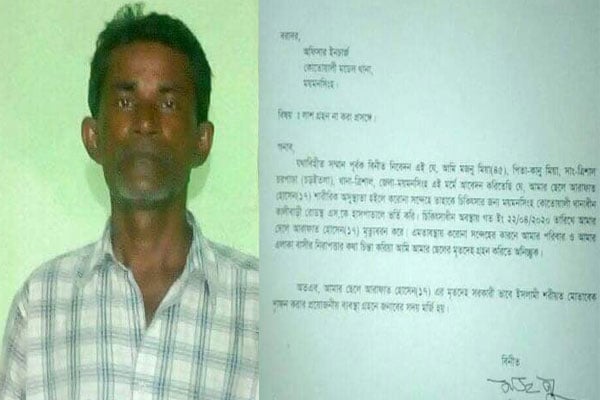 বরাবর,
অফিসার ইনচার্জ
কোতোয়ালী মডেল থানা,
ময়মনসিংহ।
বিষয় : লাশ গ্রহন না করা প্রসঙ্গে।
জনাব,
যথাবিহীত সম্মান পূর্বক বিনীত নিবেদন এই যে, আমি মজনু মিয়া(৪৫), পিতা-কানু মিয়া, সাং-ত্রিশাল
চরপাড়া (চড়ইতলা), থানা-ত্রিশাল, জেলা-ময়মনসিংহ এই মর্মে আবেদন করিতেছি যে, আমার ছেলে আরাফাত
হোসেন(১৭) শারীরিক অসুস্থতা হইলে করোনা সন্দেহে তাহাকে চিকিৎসার জন্য ময়মনসিংহ কোতোয়ালী থানাধীন
কালীবাড়ী রোডস্থ এস,কে হাসপাতালে ভর্তি করি। চিকিৎসাধীন অবস্থায় গত ইং ২২/০৪/২০২০ তারিখে আমার
ছেলে আরাফাত হোসেন(১৭) মৃত্যুবরন করে। এমতবস্থায় করোনা সন্দেহের কারনে আমার পরিবার ও আমার
এলাকা বাসীর নিরাপত্তার কথা চিন্তা করিয়া আমি আমার ছেলের মৃতদেহ গ্রহন করিতে অনিচ্ছুক।
অতএব, আমার ছেলে আরাফাত হোসেন(১৭) এর মৃতদেহ সরকারী ভাবে ইসলামী শরীয়ত মোতাবেক
দাফন করার প্রয়োজনীয় ব্যবস্থা গ্রহনে জনাবের সদয় মর্জি হয়।
বিনীত
মজনু